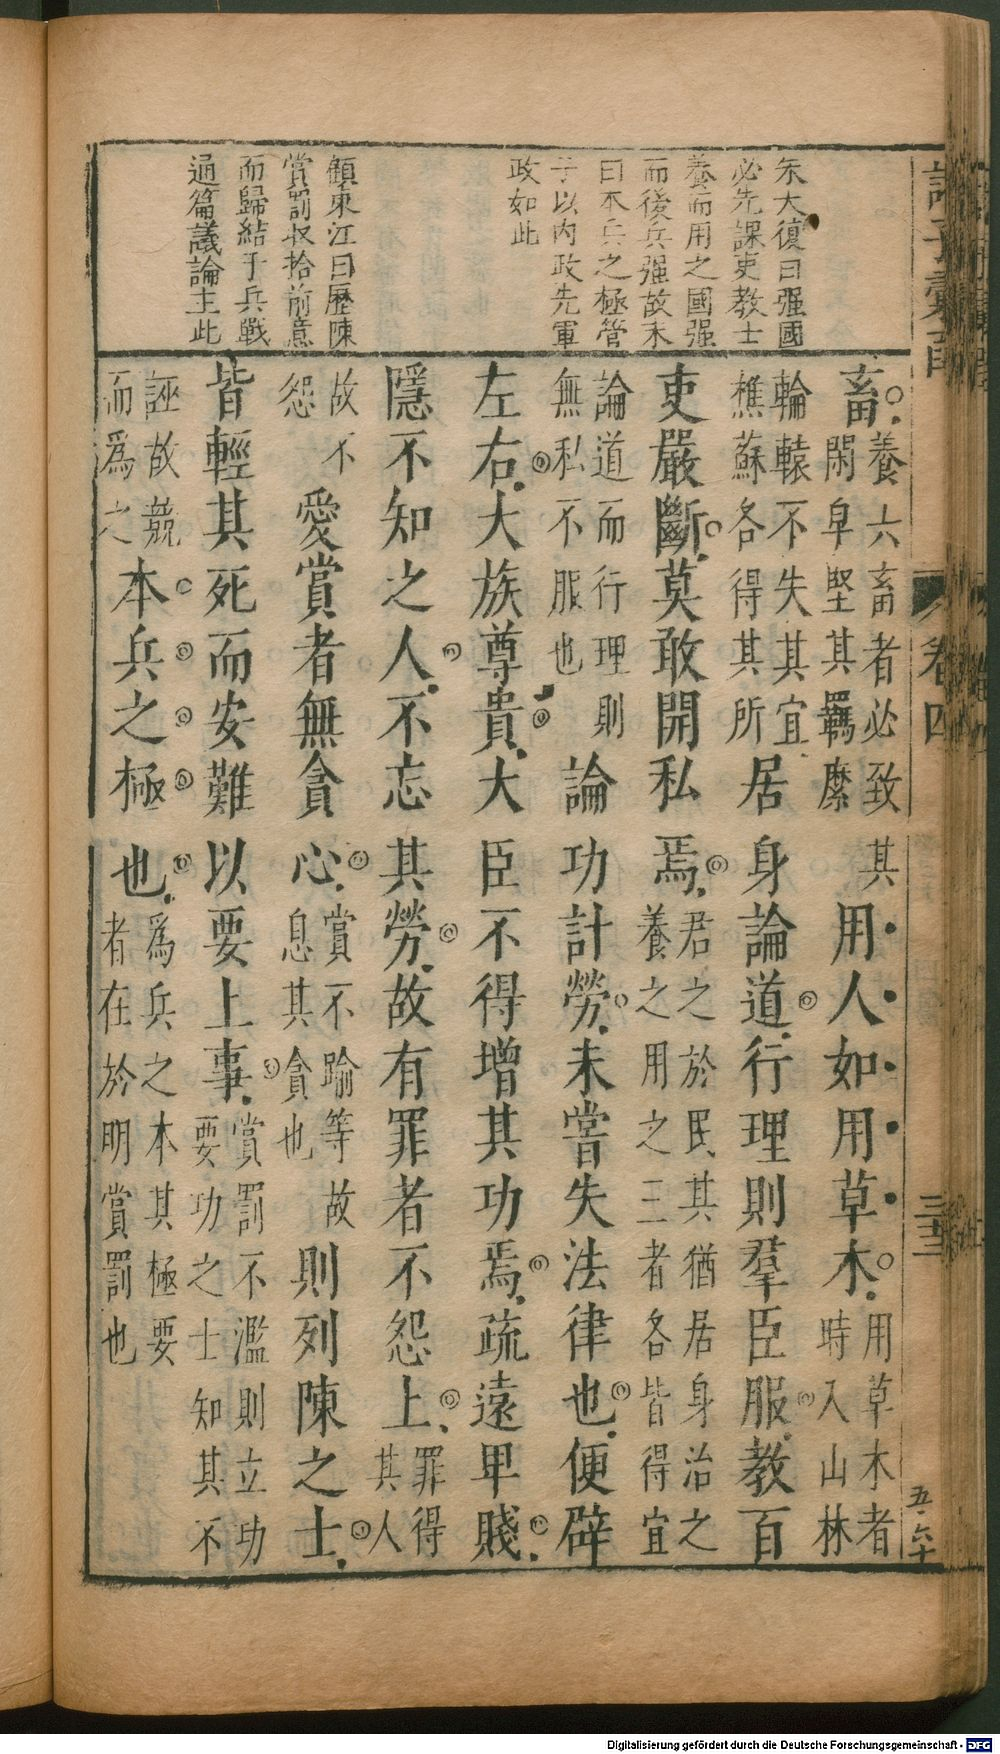 朱大復曰强國
必先課吏教士
養而用之國强
而後兵强故末
曰本兵之極管
子以内政先軍
政如此
顧東江曰歷陳
賞罰收拾前意
而歸結于兵戰
通篇議論主此
畜養六畜者必致其閑皁堅其羈縻用人如用草木用草木者時入山林
輪轅不失其宜樵蘇各得其所居身論道行理則羣臣服教百
吏嚴斷莫敢開私焉君之於民其猶居身治之養之用之三者各皆得宜
論道而行理則無私不服也論功計勞未嘗失法律也便辟
左右大族尊貴大臣不得增其功焉疏遠卑賤
隱不知之人不忘其勞故有罪者不怨上罪得其人
故不怨愛賞者無貪心賞不踰等故息其貪也則列陳之士
皆輕其死而安難以要上事賞罰不濫則立功要功之士知其不
誣故競而爲之本兵之極也爲兵之本其極要者在於明賞罰也
卷四
三十三
五六十
Digitalisierung gefördert durch die Deutsche Forschungsgemeinschaft - DFG